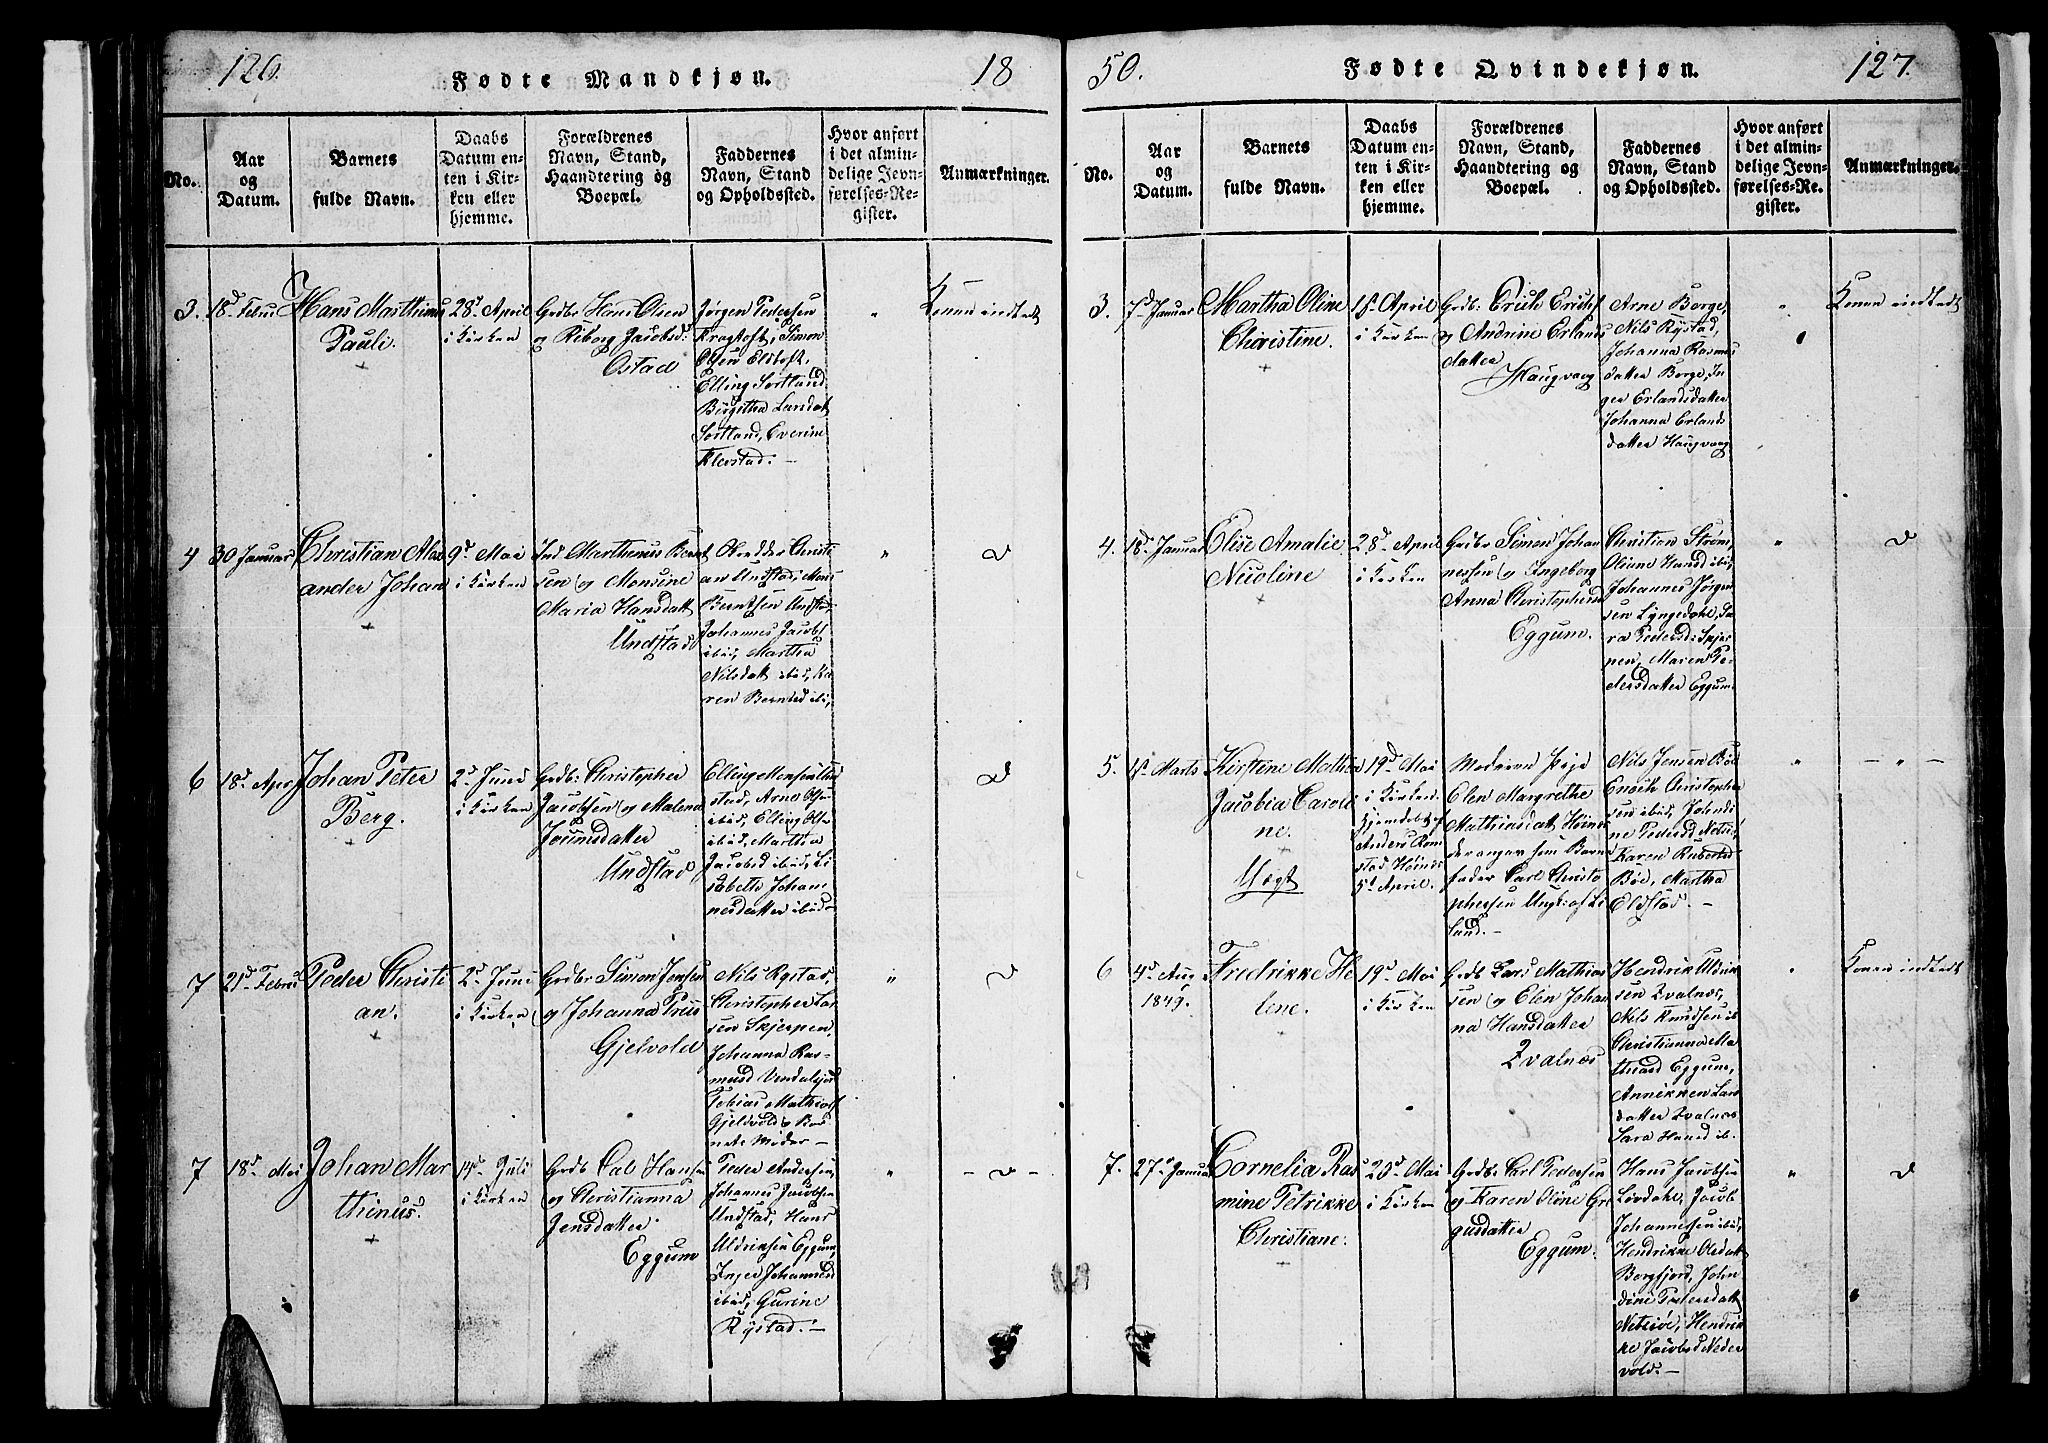 126.
Fødte Mandkjøn.
18
No.
Aar
og
Datum.
Barnets
fulde Navn.
Daabs
Datum en-
ten i Kir-
ken eller
hjemme.
Forældrenes
Navn, Stand,
Haandtering og
Boepæl.
Faddernes
Navn, Stand
og Opholdssted.
Hvor anført
i det almin-
delige Jevn-
førelses-Re-
gister.
Anmærkninger.
3.
18d Febru
Hans Marthinus
Pauli.
+
28d April
i Kirken
Grdbr Hans Olsen
og Riborg Jacobsd:
Ostad
Jørgen Pedersen
Kragtoft, Simon
Olsen Eldtoft,
Elling Sortland
Birgitha Larsdat
Sortland, Everine
Klevstad. —
"
Konen indledt
4
30 Januar
Christian Alex
ander Johan
+
9d Mai
i Kirken
Ind Marthinus Bernt
sen og Monsine
Maria Hansdatt
Undstad
Christi
an Undstad, Mons
Berntsen Undstad
Johannes Jacobs
ibid, Martha
Nilsdatt ibid, Ka
ren Berntsd ibi,
"
d
6
18d Apr
Johan Peter
Berg.
+
2d Juni
i Kirken
Grdb: Christopher
Jacobsen og Malena
Joensdatter
Undstad
Elling Monsen Und
stad, Arne
ibid, Elling
ibid, Martha
Jacobsd ibid, Li
sabeth Johan
nesdatter ibid
d
7
21d Febru
Peder Christi
an.
+
2d Juni
i Kirken
Grdbr Simon Jensen
og Johanna Priis
Gjelvold
Nils Rystad,
Christopher Lar
sen Skjerpen,
Johanna Ras-
musd Vendalsjord
Tobias Mathias
Gjelvold og Bar
nets Moder —
"
d
7
18d Mai
Johan Mar
thinus.
+
14d Juli
i Kirken
Grdb Hansen
og Christianna
Jensdatter
Eggum
Peder Andersen,
Johannes Jacobsen
Undstad, Hans
Uldriksen Eggum,
Inger Johannesd
ibid, Gurine
Rystad. —
"
- d -
50.
Fødte Qvindekjøn.
127.
No.
Aar
og
Datum.
Barnets
fulde Navn.
Daabs
Datum en-
ten i Kir-
ken eller
hjemme.
Forældrenes
Navn, Stand,
Haandtering og
Boepæl.
Faddernes
Navn, Stand
og Opholdssted.
Hvor anført
i det almin-
delige Jevn-
førelses-Re-
gister.
Anmærkninger.
3.
7d Januar
Martha Oline
Christine.
+
1st April
i Kirken
Grdb: Erich Erichs
og Andrine Erlands
datter
Haugvaag
Arne Borge,
Nils Rystad,
Johanna Rasmus
datter Borge, In
ger Erlandsdatter
Johanna Erlands
datter Haugvaag
"
Konen indledt
4.
18d Januar
Elise Amalie
Nicoline
+
28d April
i Kirken
Grdbr Simon Johan
nessen og Ingeborg
Anna Christophersd
Eggum.
Christian Strøm,
Oliane Hansd ibid,
Johannes Jørgen
sen Lyngedahl, Sa
ra Pedersd: Skjer
pen, Maren Pe-
dersdatter Eggum
"
d
5.
1st Marts
Kirstine Mathea
Jacobia Caroli
ne.
Uægt
19d Mai
i Kirken.
hjemdøbt af
Anders Ram
stad, Høines
5d April.
Moderen Pige
Elen Margrethe
Mathiasdat Høines
der angav som Barne
fader Carl Christo
phersen Ungk: af Li
land. —
Nils Jensen Bøe
Enoch Christopher
sen ibid, Johndi
ne Pedersd
Karen Rubertsd
Bøe, Martha
Eldstad. —
"
- " -
6
4d Aug
1849.
Fredrikke He
lene.
19d Mai
i Kirken
Grdb Lars Mathias
sen og Elen Johan
na Hansdatter
Zvalnæs
Hendrik Uldrik
sen Zvalnæs,
Nils Knudsen ib
Christianna Ma
thiasd Eggum,
Annikken Lars
datter Zvalnæs
Sara Hansd ib.
"
Konen indledt
7.
27d Januar
Cornelia Ras
mine Petrikke
Christiane.
+
20d Mai
i Kirken
Grdb: Carl Pedersen
og Karen Oline Gre
gusdatter
Eggum.
Hans Jacobsen
Liodahl, Jacob
Johannesen ibid,
Hendrikke Olsdatt
Borgfjord, John
dine Pedersdatt
Hendrik
ke Jacobsd Neder
vold. —
"
d